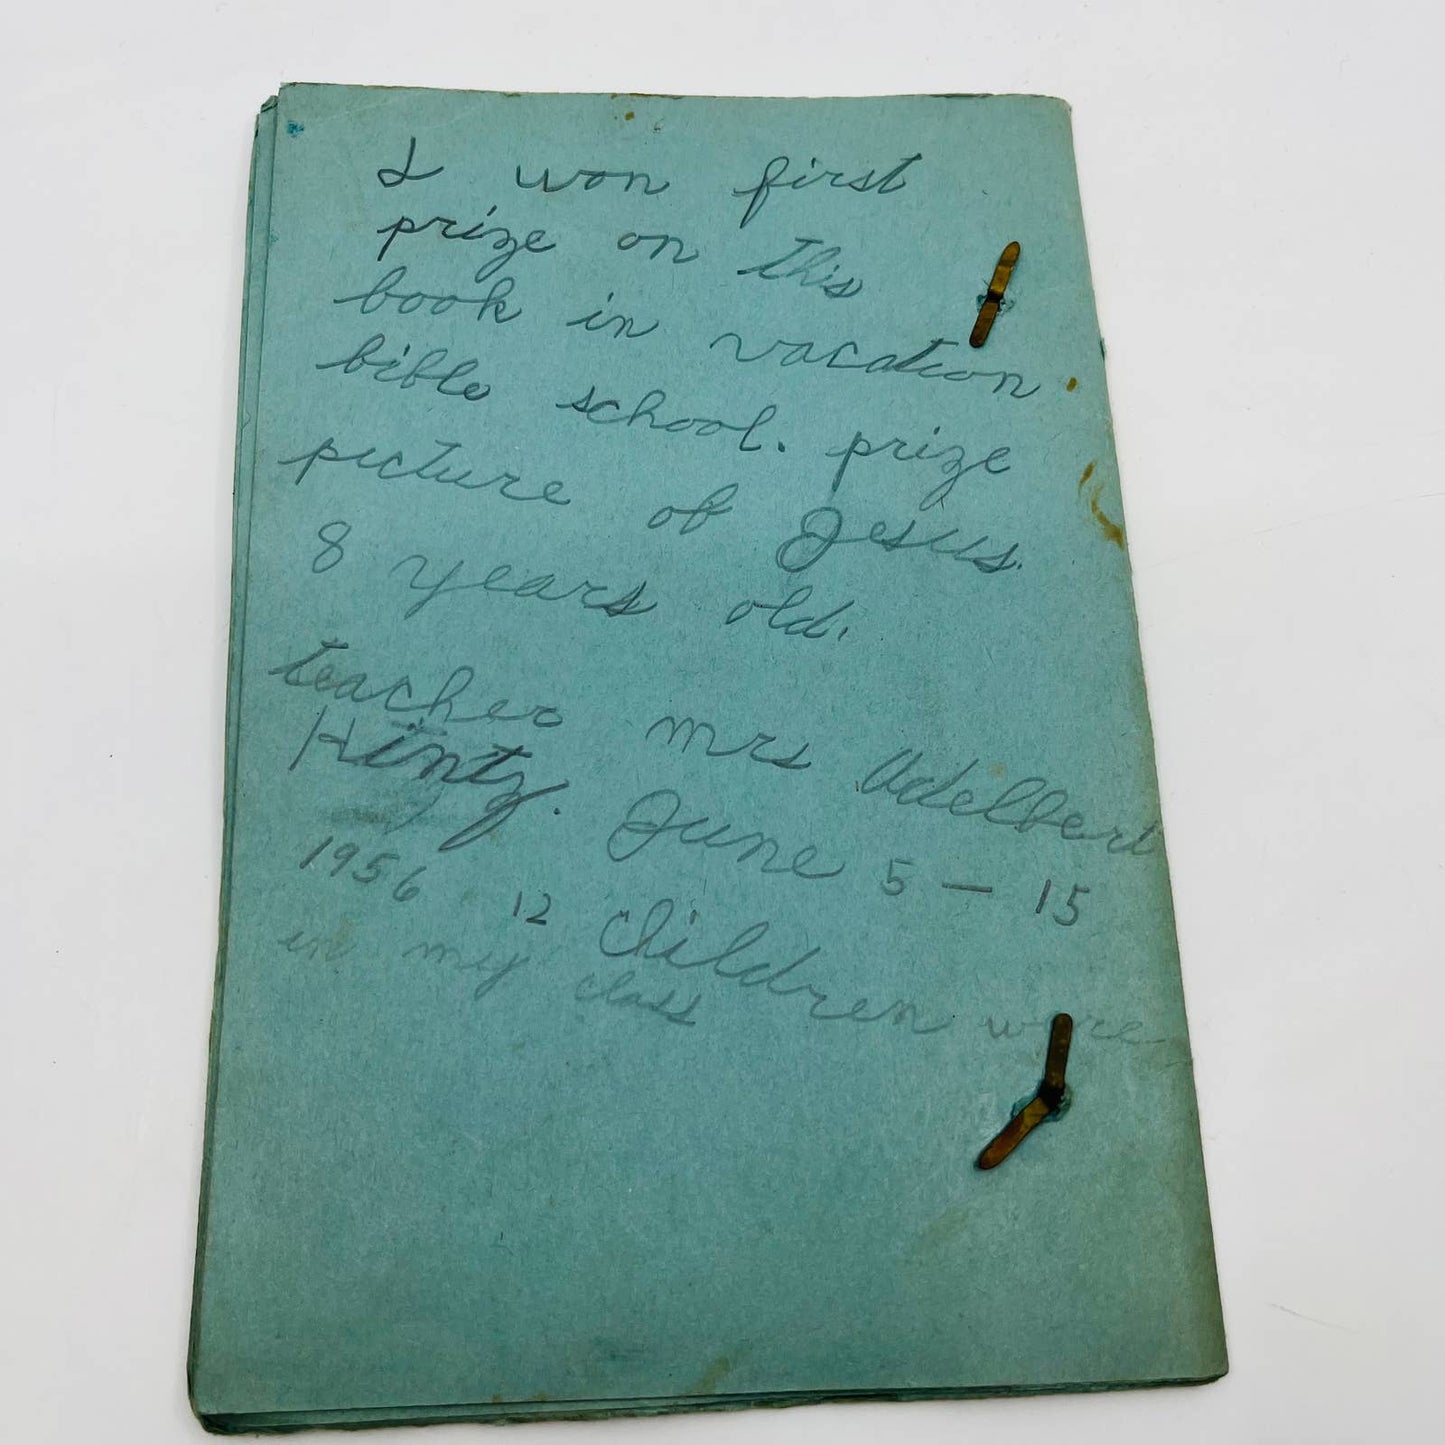 I won first
prize on this
book in vacation
bible school. prize
picture of Jesus.
8 years old.
teacher mrs Adelbert
Hintz. June 5 - 15
1956 12 children were
in my class